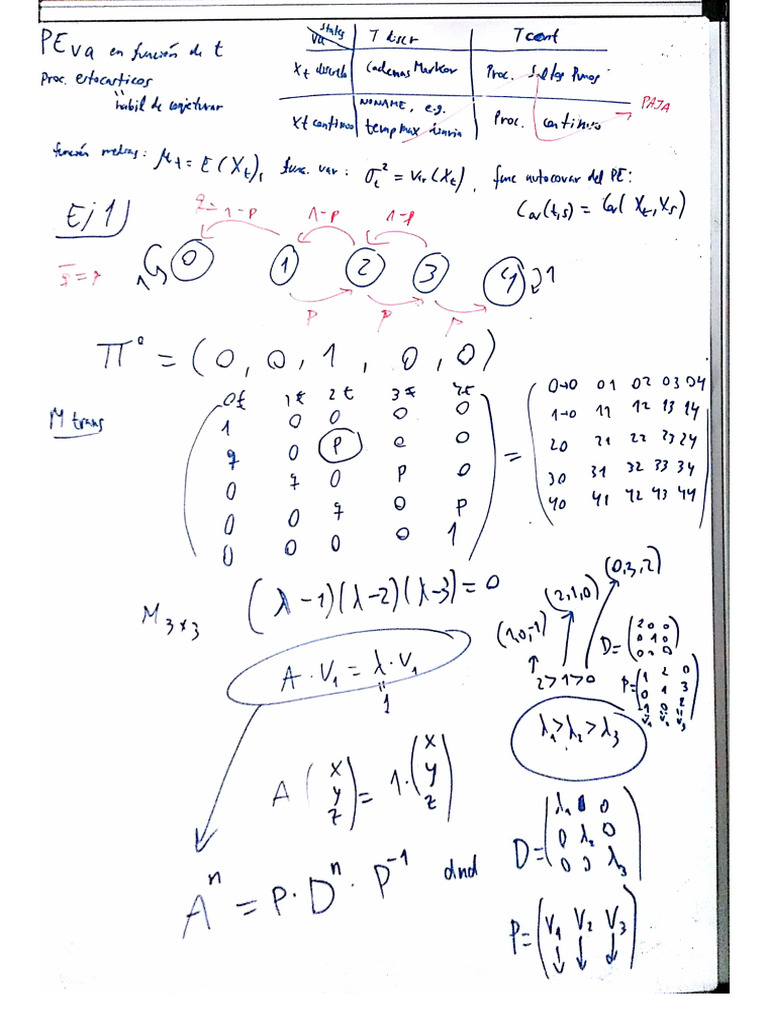 PE va en función de t
Proc. estocasticos
habil de conjeturar
states
va
T discr
T cont
Xt discreto
Cadenas Markov
Proc. Saltos Puros
Xt continuo
NONAME, e.g.
temp max diaria
Proc. continuo
PAJA
función medias: μt = E(Xt), func. var: σt² = Var(Xt), func autocovar del PE:
Cov(t,s) = Cov(Xt, Xs)
Ej 1)
q = 1-p 1-p 1-p
1 0 1 2 3 4 1
p p p
π⁰ = (0, 0, 1, 0, 0)
M trans
0t 1t 2t 3t 4t
1 0 0 0 0
q 0 p 0 0
0 q 0 p 0
0 0 q 0 p
0 0 0 0 1
=
0→0 01 02 03 04
1→0 11 12 13 14
20 21 22 23 24
30 31 32 33 34
40 41 42 43 44
M 3x3 (λ-1)(λ-2)(λ-3) = 0
A · V1 = λ · V1
1
(1,0,-1) (2,1,0) (0,3,2)
2>1>0
D= (2 0 0
0 1 0
0 0 0)
P= (1 2 0
0 1 3
-1 0 2)
V1 V2 V3
λ1 > λ2 > λ3
A (x y z) = 1 · (x y z)
Aⁿ = P · Dⁿ · P⁻¹ dnd
D= (λ1 0 0
0 λ2 0
0 0 λ3)
P= (V1 V2 V3)